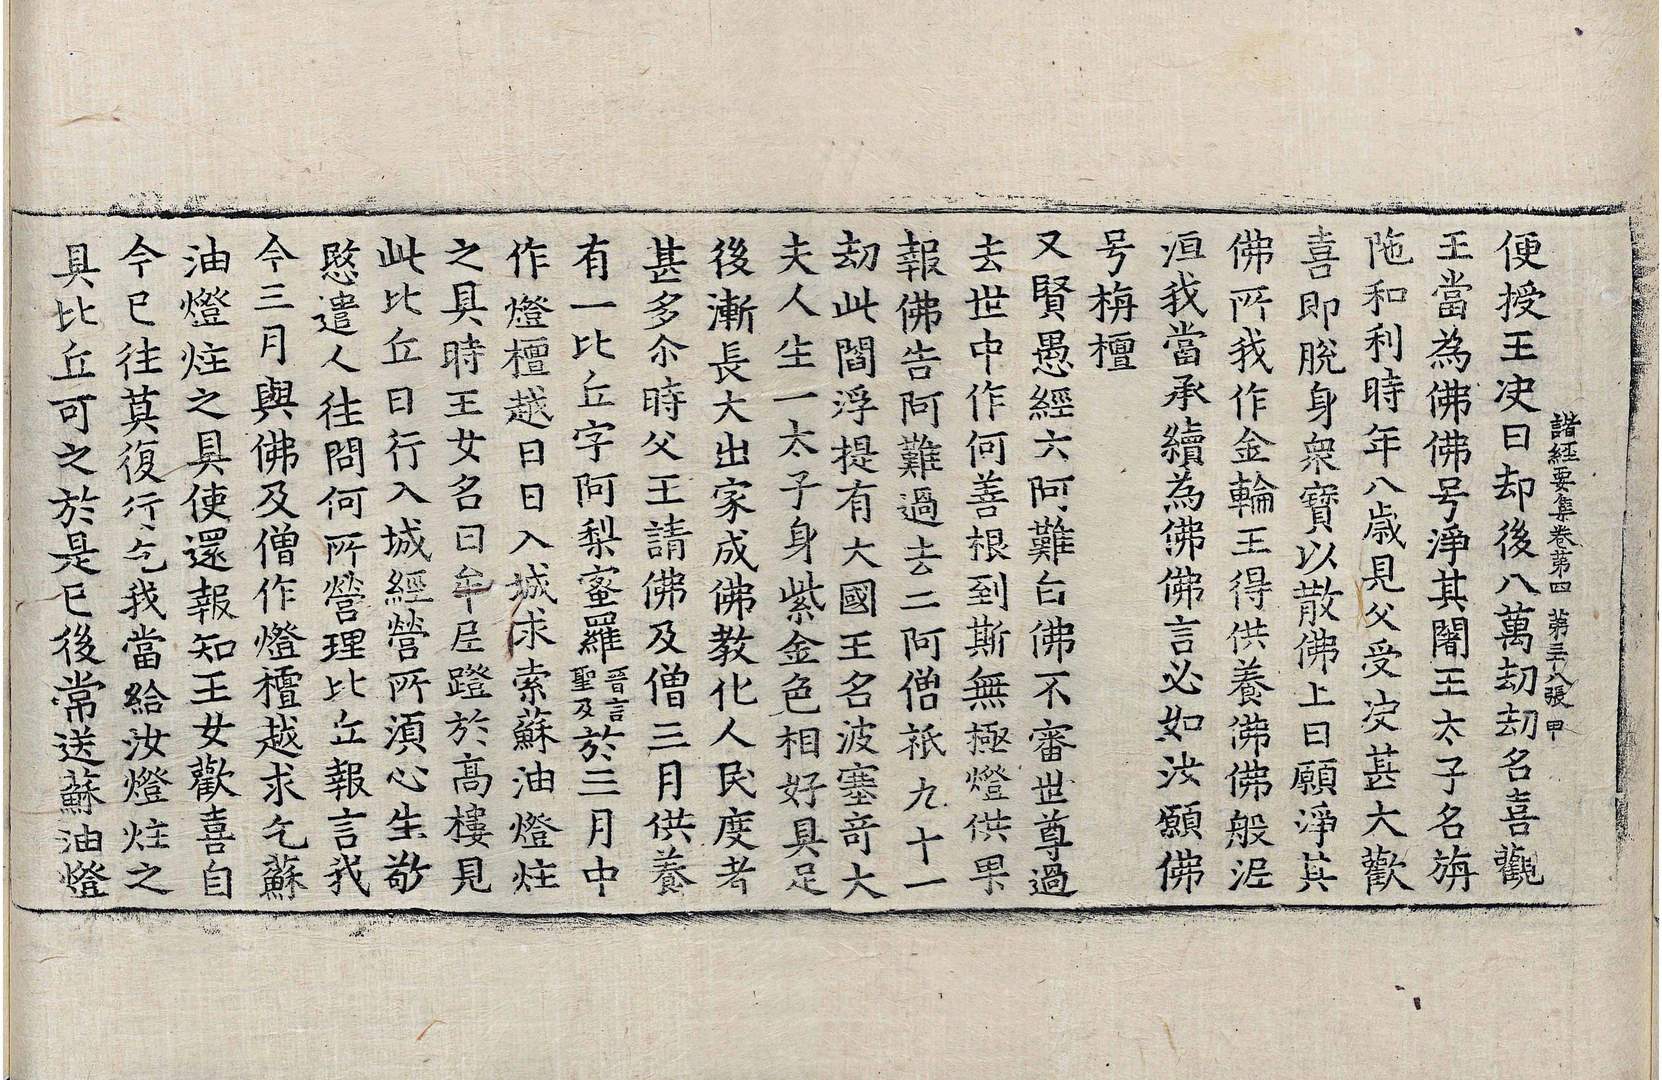 諸經要集卷第四 第三十八張 甲
便授王决曰却後八萬劫劫名喜觀
王當為佛佛号淨其闍王太子名旃
陁和利時年八歲見父受决甚大歡
喜即脫身衆寶以散佛上曰願淨其
佛所我作金輪王得供養佛佛般泥
洹我當承續為佛佛言必如汝願佛
号栴檀
又賢愚經六阿難白佛不審世尊過
去世中作何善根到斯無極燈供果
報佛告阿難過去二阿僧祇九十一
劫此閻浮提有大國王名波塞奇大
夫人生一太子身紫金色相好具足
後漸長大出家成佛教化人民度者
甚多尒時父王請佛及僧三月供養
有一比丘字阿梨蜜羅晉言聖及於三月中
作燈檀越日日入城求索蘇油燈炷
之具時王女名曰牟𡰱蹬於高樓見
此比丘日行入城經營所湏心生敬
愍遣人往問何所營理比丘報言我
今三月與佛及僧作燈檀越求乞蘇
油燈炷之具使還報知王女歡喜自
今已往莫復行乞我當給汝燈炷之
具比丘可之於是已後常送蘇油燈